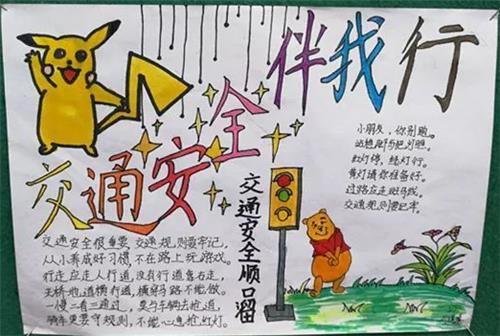 交通安全
伴我行
小朋友，你别跑。
红灯停，绿灯行。
黄灯请你准备好。
过路应走斑马线。
交通规则要记牢。
交通安全顺口溜
交通安全很重要 交通规则要牢记，
从小养成好习惯 不在路上玩游戏。
行走应走人行道，没有行道靠右走，
天桥地道横行道，横穿马路不能做。
一慢二看三通过，莫与车辆去抢道
骑车更要守规则，不能心急抢红灯